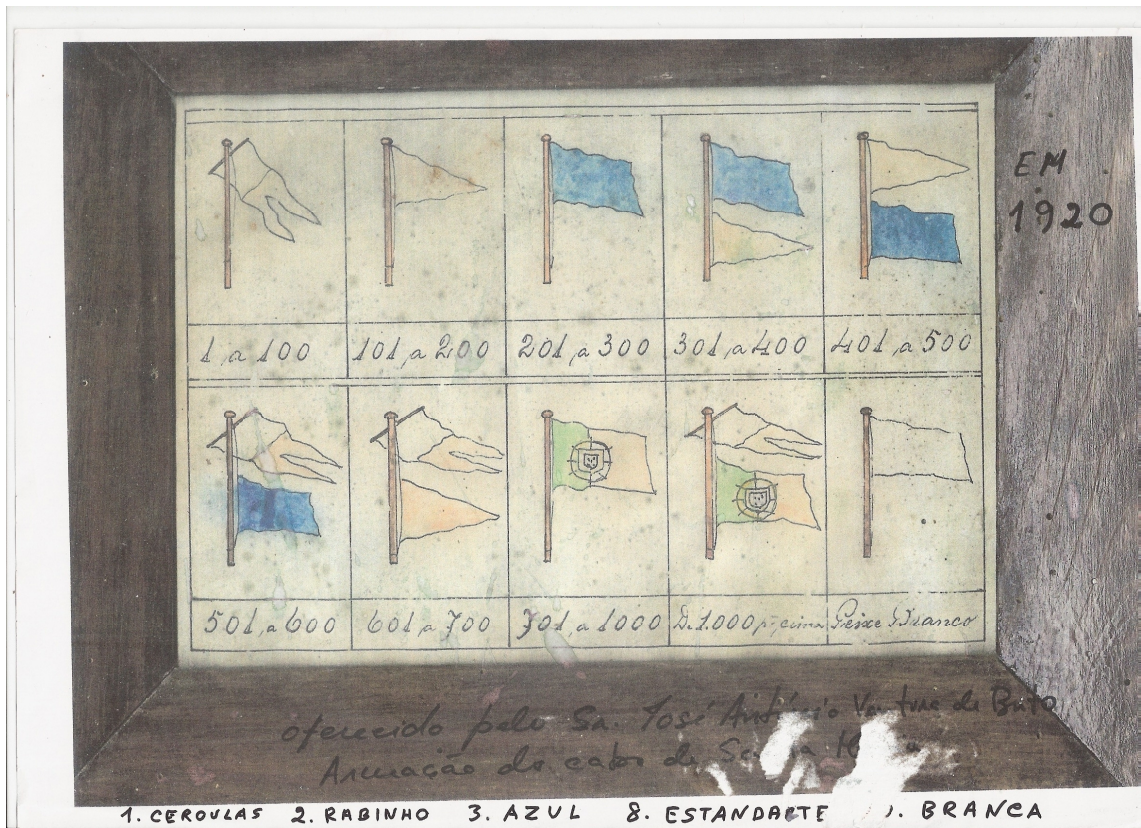 EM
1920
1 a 100 101, a 200 201, a 300 301, a 400 401 a 500
501, a 600 601, a 700 701, a 1000 D. 1.000 p. cima Peixe Branco
oferecido pelo Sr. José António Ventura de Brito
Armação do cabo de
1. CEROULAS 2. RABINHO 3. AZUL 8. ESTANDARTE . BRANCA